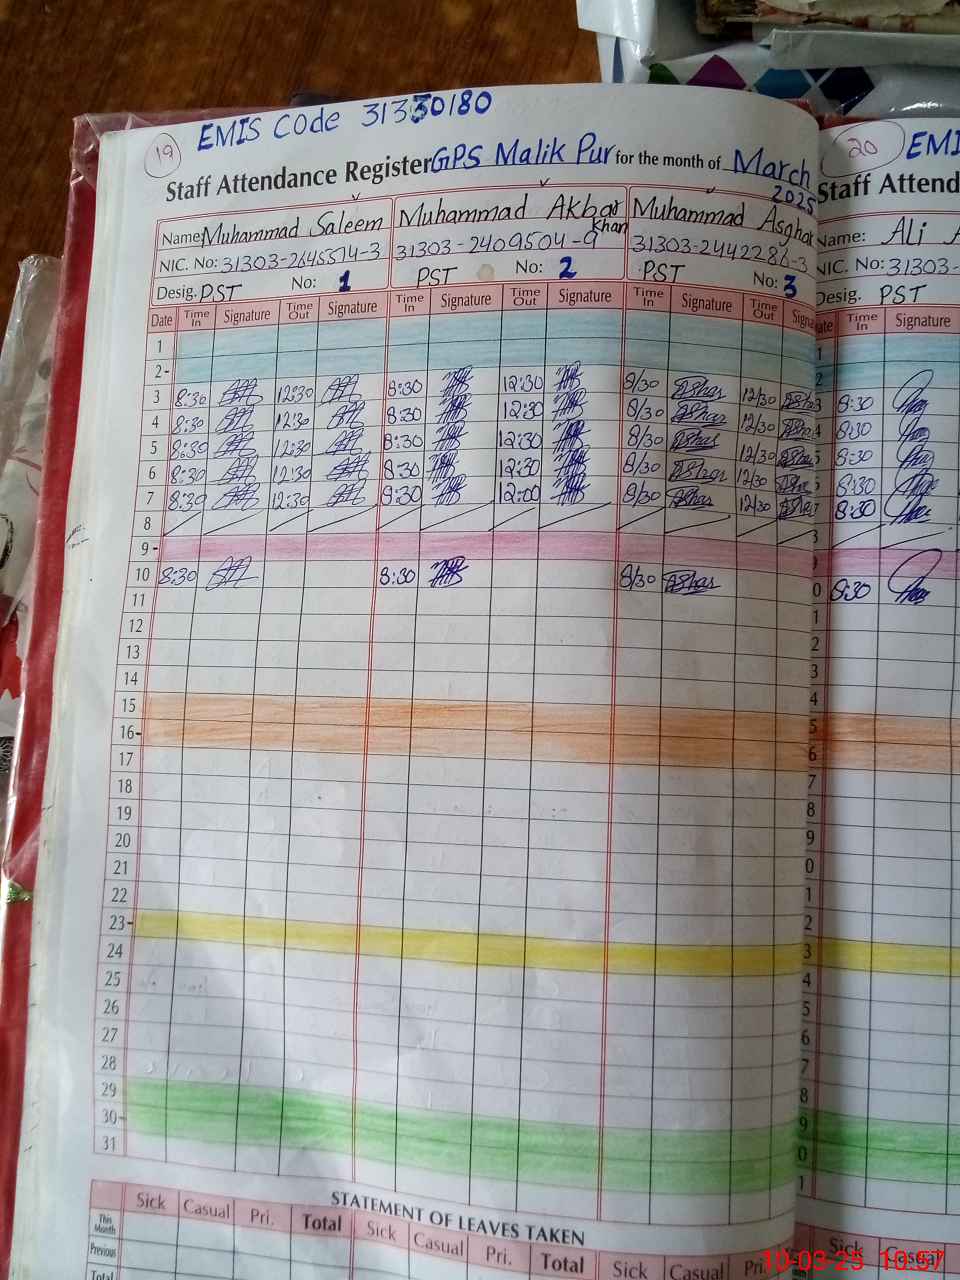 19
EMIS Code 31330180
Staff Attendance Register GPS Malik Pur for the month of March 2025
Name: Muhammad Saleem Muhammad Akbar Khan Muhammad Asghar
NIC. No: 31303-2645574-3 31303-2409504-9 31303-2442286-3
Desig. PST No: 1 PST No: 2 PST No: 3
Date Time In Signature Time Out Signature Time In Signature Time Out Signature Time In Signature Time Out Signa
1
2-
3 8:30 12:30 8:30 12:30 8/30 Ashar 12/30
4 8:30 12:30 8:30 12:30 8/30 Ashar 12/30
5 8:30 12:30 8:30 12:30 8/30 Ashar 12/30
6 8:30 12:30 8:30 12:30 8/30 Ashar 12/30
7 8:30 12:30 8:30 12:00 8/30 Ashar 12/30
8
9-
10 8:30 8:30 8/30 Ashar
11
12
13
14
15
16-
17
18
19
20
21
22
23-
24
25
26
27
28
29
30-
31
STATEMENT OF LEAVES TAKEN
Sick Casual Pri. Total Sick Casual Pri. Total Sick Casual Pri
This Month
Previous
Total
20 EMI
Staff Attend
Name: Ali A
NIC. No: 31303-
Desig. PST
ate Time In Signature
1
2
3 8:30
4 8:30
5 8:30
6 8:30
7 8:30
8
0 8:30
1
2
3
4
5
6
7
8
9
0
1
2
3
4
5
6
7
8
9
0
1
Sick Casual
10-03-25 10:57